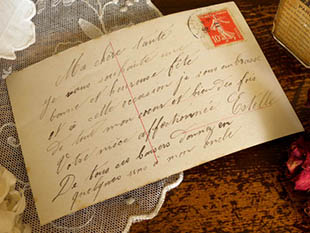 Ma chère tante
je vous souhaite une
bonne et heureuse fête
et à cette occasion je vous embrasse
de tout mon cœur et bien des fois
Votre nièce affectionnée Estelle
De tous ces baisers donnez en
quelques uns à mon oncle
10